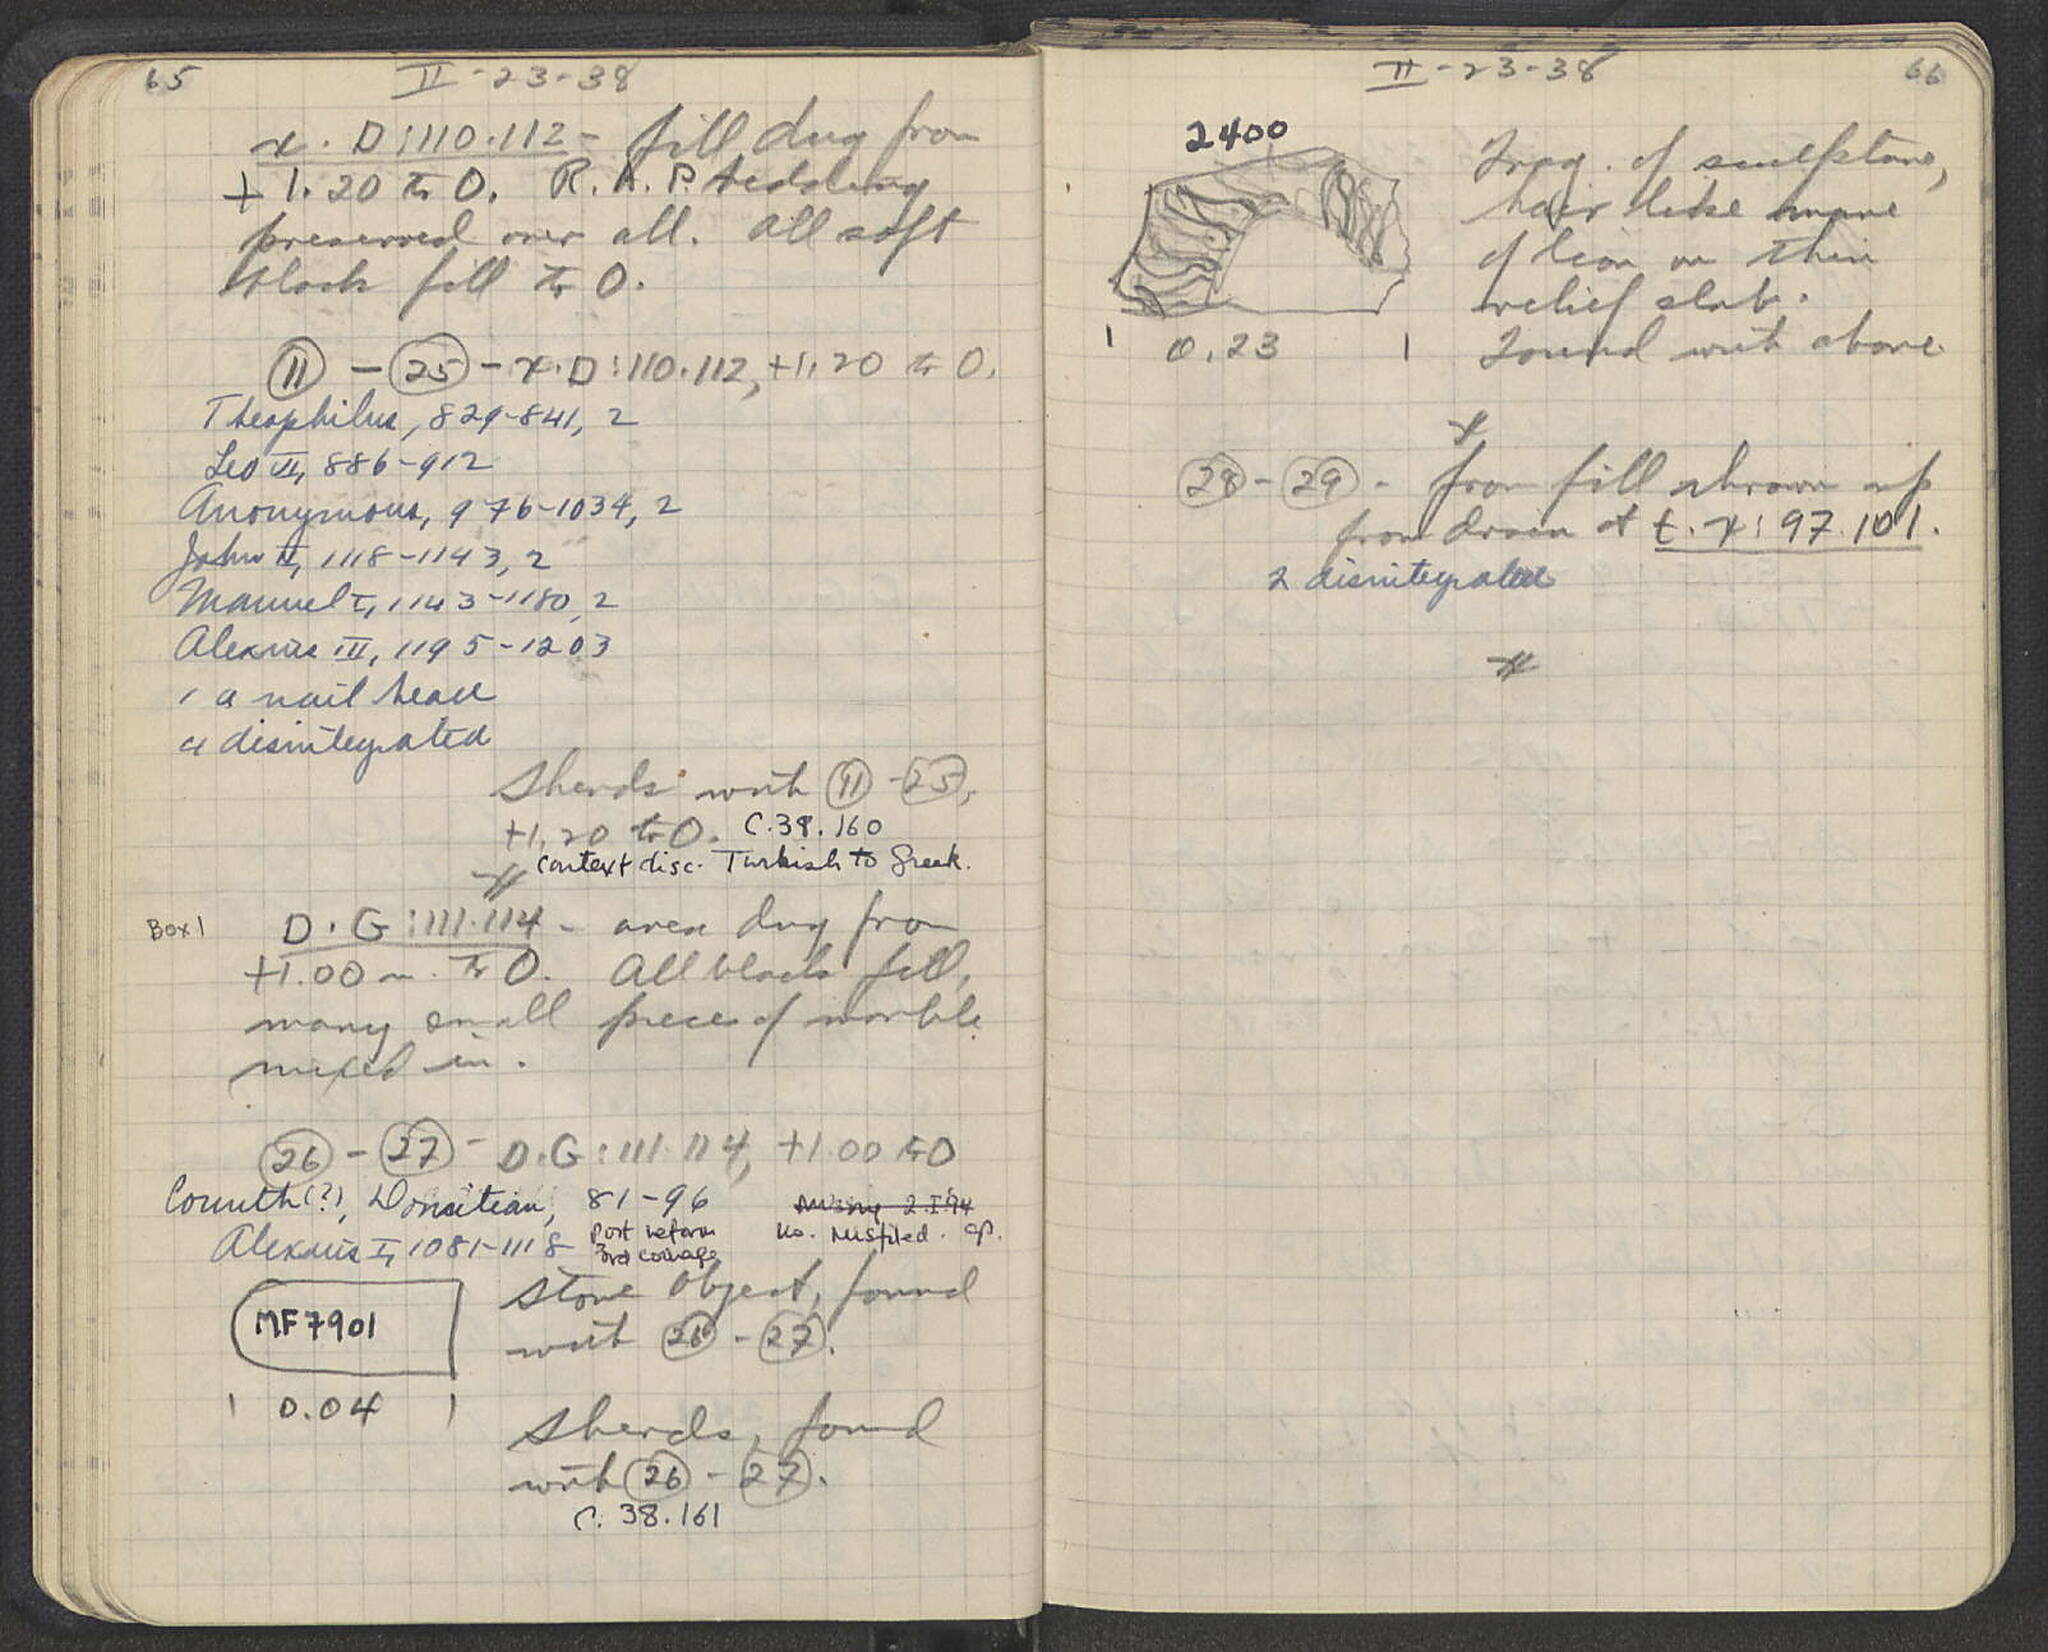 65
II-23-38
x. D:110.112 - fill dug from
+1.20 to 0. R.A.P. bedding
preserved over all. All soft
black fill to 0.
11 - 25 - x.D:110.112, +1.20 to 0.
Theophilus, 829-841, 2
Leo VI, 886-912
Anonymous, 976-1034, 2
John II, 1118-1143, 2
Manuel I, 1143-1180, 2
Alexius III, 1195-1203
1 a nail head
4 disintegrated
Sherds with 11 - 25,
+1.20 to 0. C.38.160
Context disc. Turkish to Greek.
Box 1
D.G:111.114 - area dug from
+1.00 m. to 0. All black fill,
many small piece of marble
mixed in.
26 - 27 - D.G:111.114, +1.00 to 0
Corinth(?), Domitian, 81-96
Missing 2.I.94
Alexius I, 1081-1118 Post reform
3rd coinage
No. Misfiled.
MF 7901
0.04
Stone object, found
with 26 - 27.
Sherds, found
with 26 - 27.
C. 38.161
II-23-38
66
2400
0.23
Frag. of sculpture,
hair like mane
of lion on thin
relief slab.
Found with above
28 - 29 - from fill thrown up
from drain at t.x:97.101.
2 disintegrated